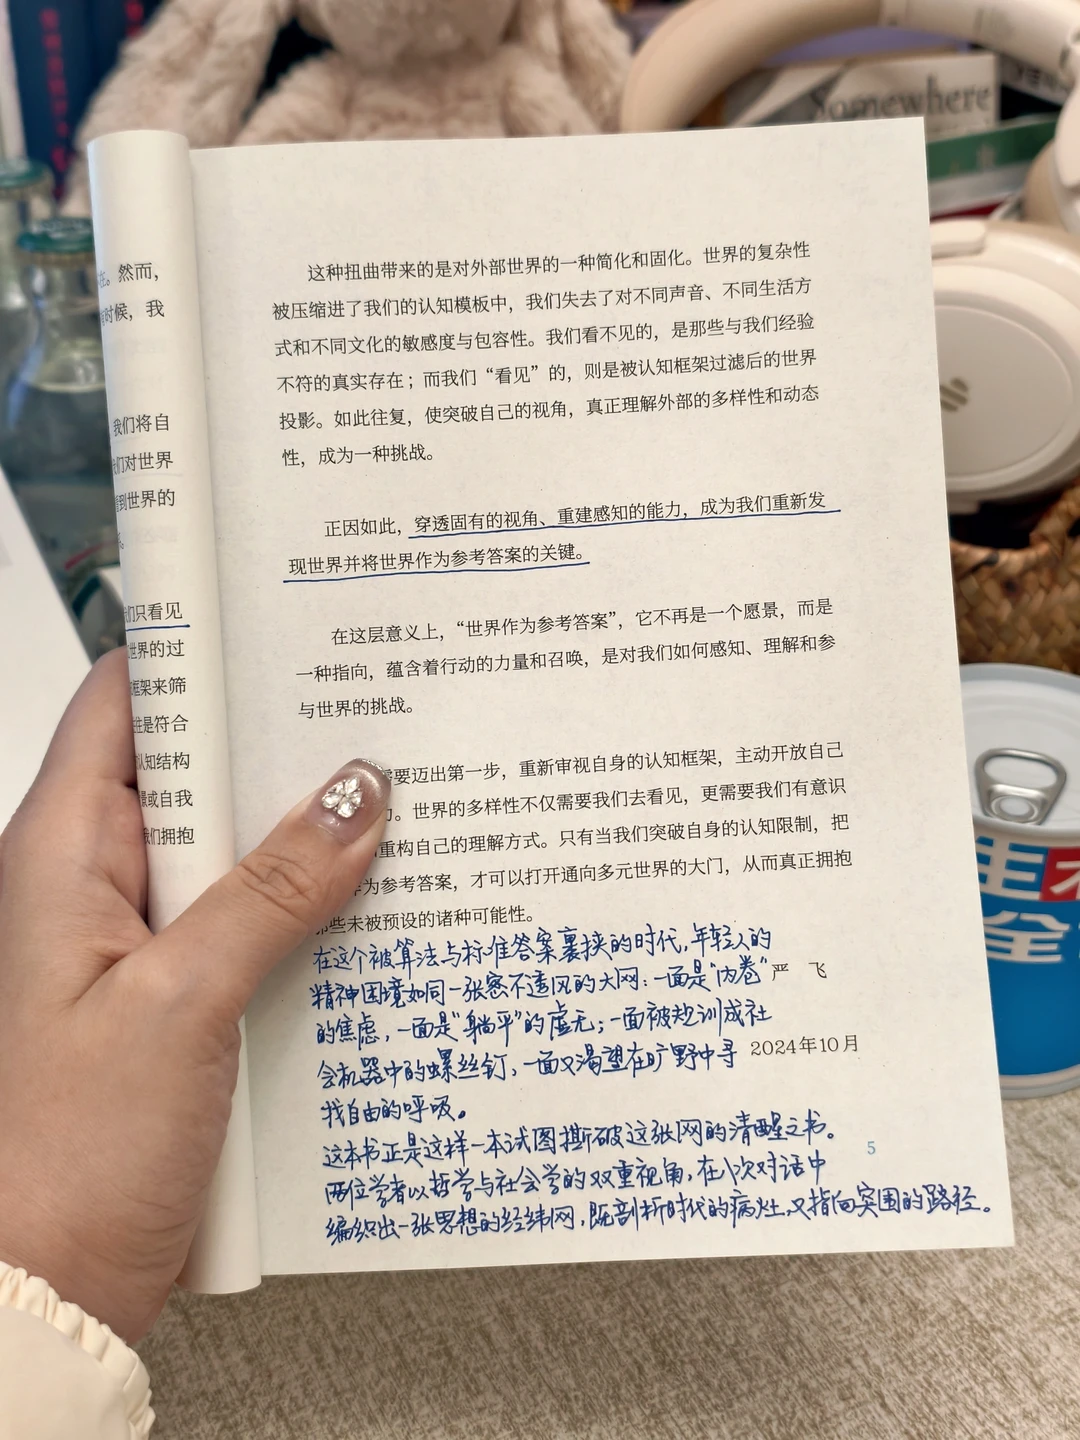 Somewhere
在。然而，
时候，我
我们将自
们对世界
看到世界的
们只看见
世界的过
框架来筛
往是符合
认知结构
景或自我
我们拥抱
这种扭曲带来的是对外部世界的一种简化和固化。世界的复杂性
被压缩进了我们的认知模板中，我们失去了对不同声音、不同生活方
式和不同文化的敏感度与包容性。我们看不见的，是那些与我们经验
不符的真实存在；而我们“看见”的，则是被认知框架过滤后的世界
投影。如此往复，使突破自己的视角，真正理解外部的多样性和动态
性，成为一种挑战。
正因如此，穿透固有的视角、重建感知的能力，成为我们重新发
现世界并将世界作为参考答案的关键。
在这层意义上，“世界作为参考答案”，它不再是一个愿景，而是
一种指向，蕴含着行动的力量和召唤，是对我们如何感知、理解和参
与世界的挑战。
需要迈出第一步，重新审视自身的认知框架，主动开放自己
力。世界的多样性不仅需要我们去看见，更需要我们有意识
重构自己的理解方式。只有当我们突破自身的认知限制，把
作为参考答案，才可以打开通向多元世界的大门，从而真正拥抱
那些未被预设的诸种可能性。
在这个被算法与标准答案裹挟的时代，年轻人的
精神困境如同一张密不透风的大网：一面是“内卷”
严 飞
的焦虑，一面是“躺平”的虚无；一面被规训成社
会机器中的螺丝钉，一面又渴望在旷野中寻
2024年10月
找自由的呼吸。
这本书正是这样一本试图撕破这张网的清醒之书。
5
两位学者以哲学与社会学的双重视角，在八次对话中
编织出一张思想的经纬网，既剖析时代的病灶，又指向突围的路径。
全